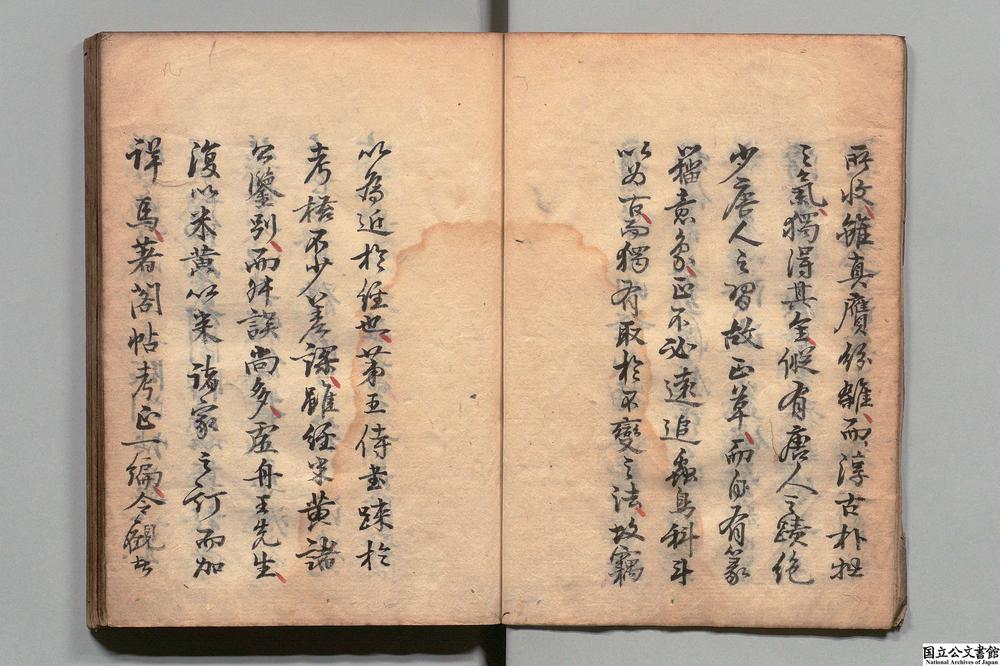 所收雖真贋紛雜而淳古朴拙
之氣獨得其全縱有唐人之蹟絶
少唐人之習故正草而自有篆
籀意象正不必遠追蟲鳥科斗
以為高獨有取於不變之法故竊
以為近於經也第王侍書踈於
考核不少差謬雖經宋黄諸
公鑒別而舛誤尚多虚舟王先生
復以米黄以来諸家之訂而加
詳焉著閣帖考正一編今觀此
国立公文書館
National Archives of Japan